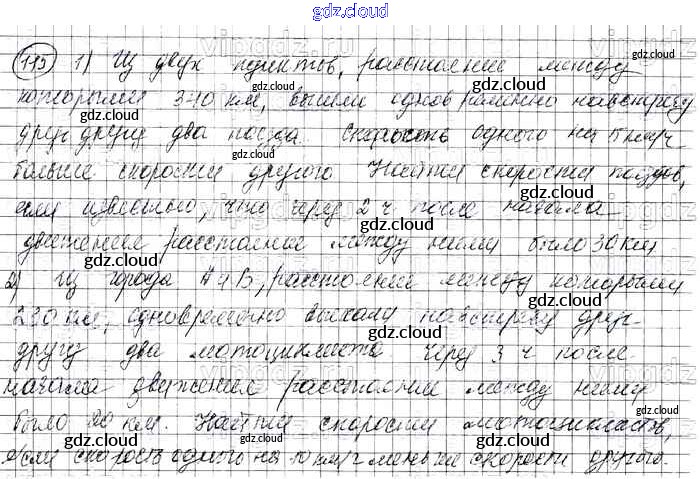 gdz.cloud
115 1) Из двух пунктов, расстояние между
которыми 340 км, вышли одновременно навстречу
друг другу два поезда. Скорость одного на 5 км/ч
больше скорости другого Найти скорости поездов,
если известно, что через 2 ч после начала
движения расстояние между ними было 30 км
2) Из города А и В, расстояние между которыми
230 км, одновременно выехали навстречу друг
другу два мотоциклиста через 3 ч после
начала движения расстояние между ними
было 20 км. Найти скорости мотоциклистов,
если скорость одного на 10 км/ч меньше скорости другого.